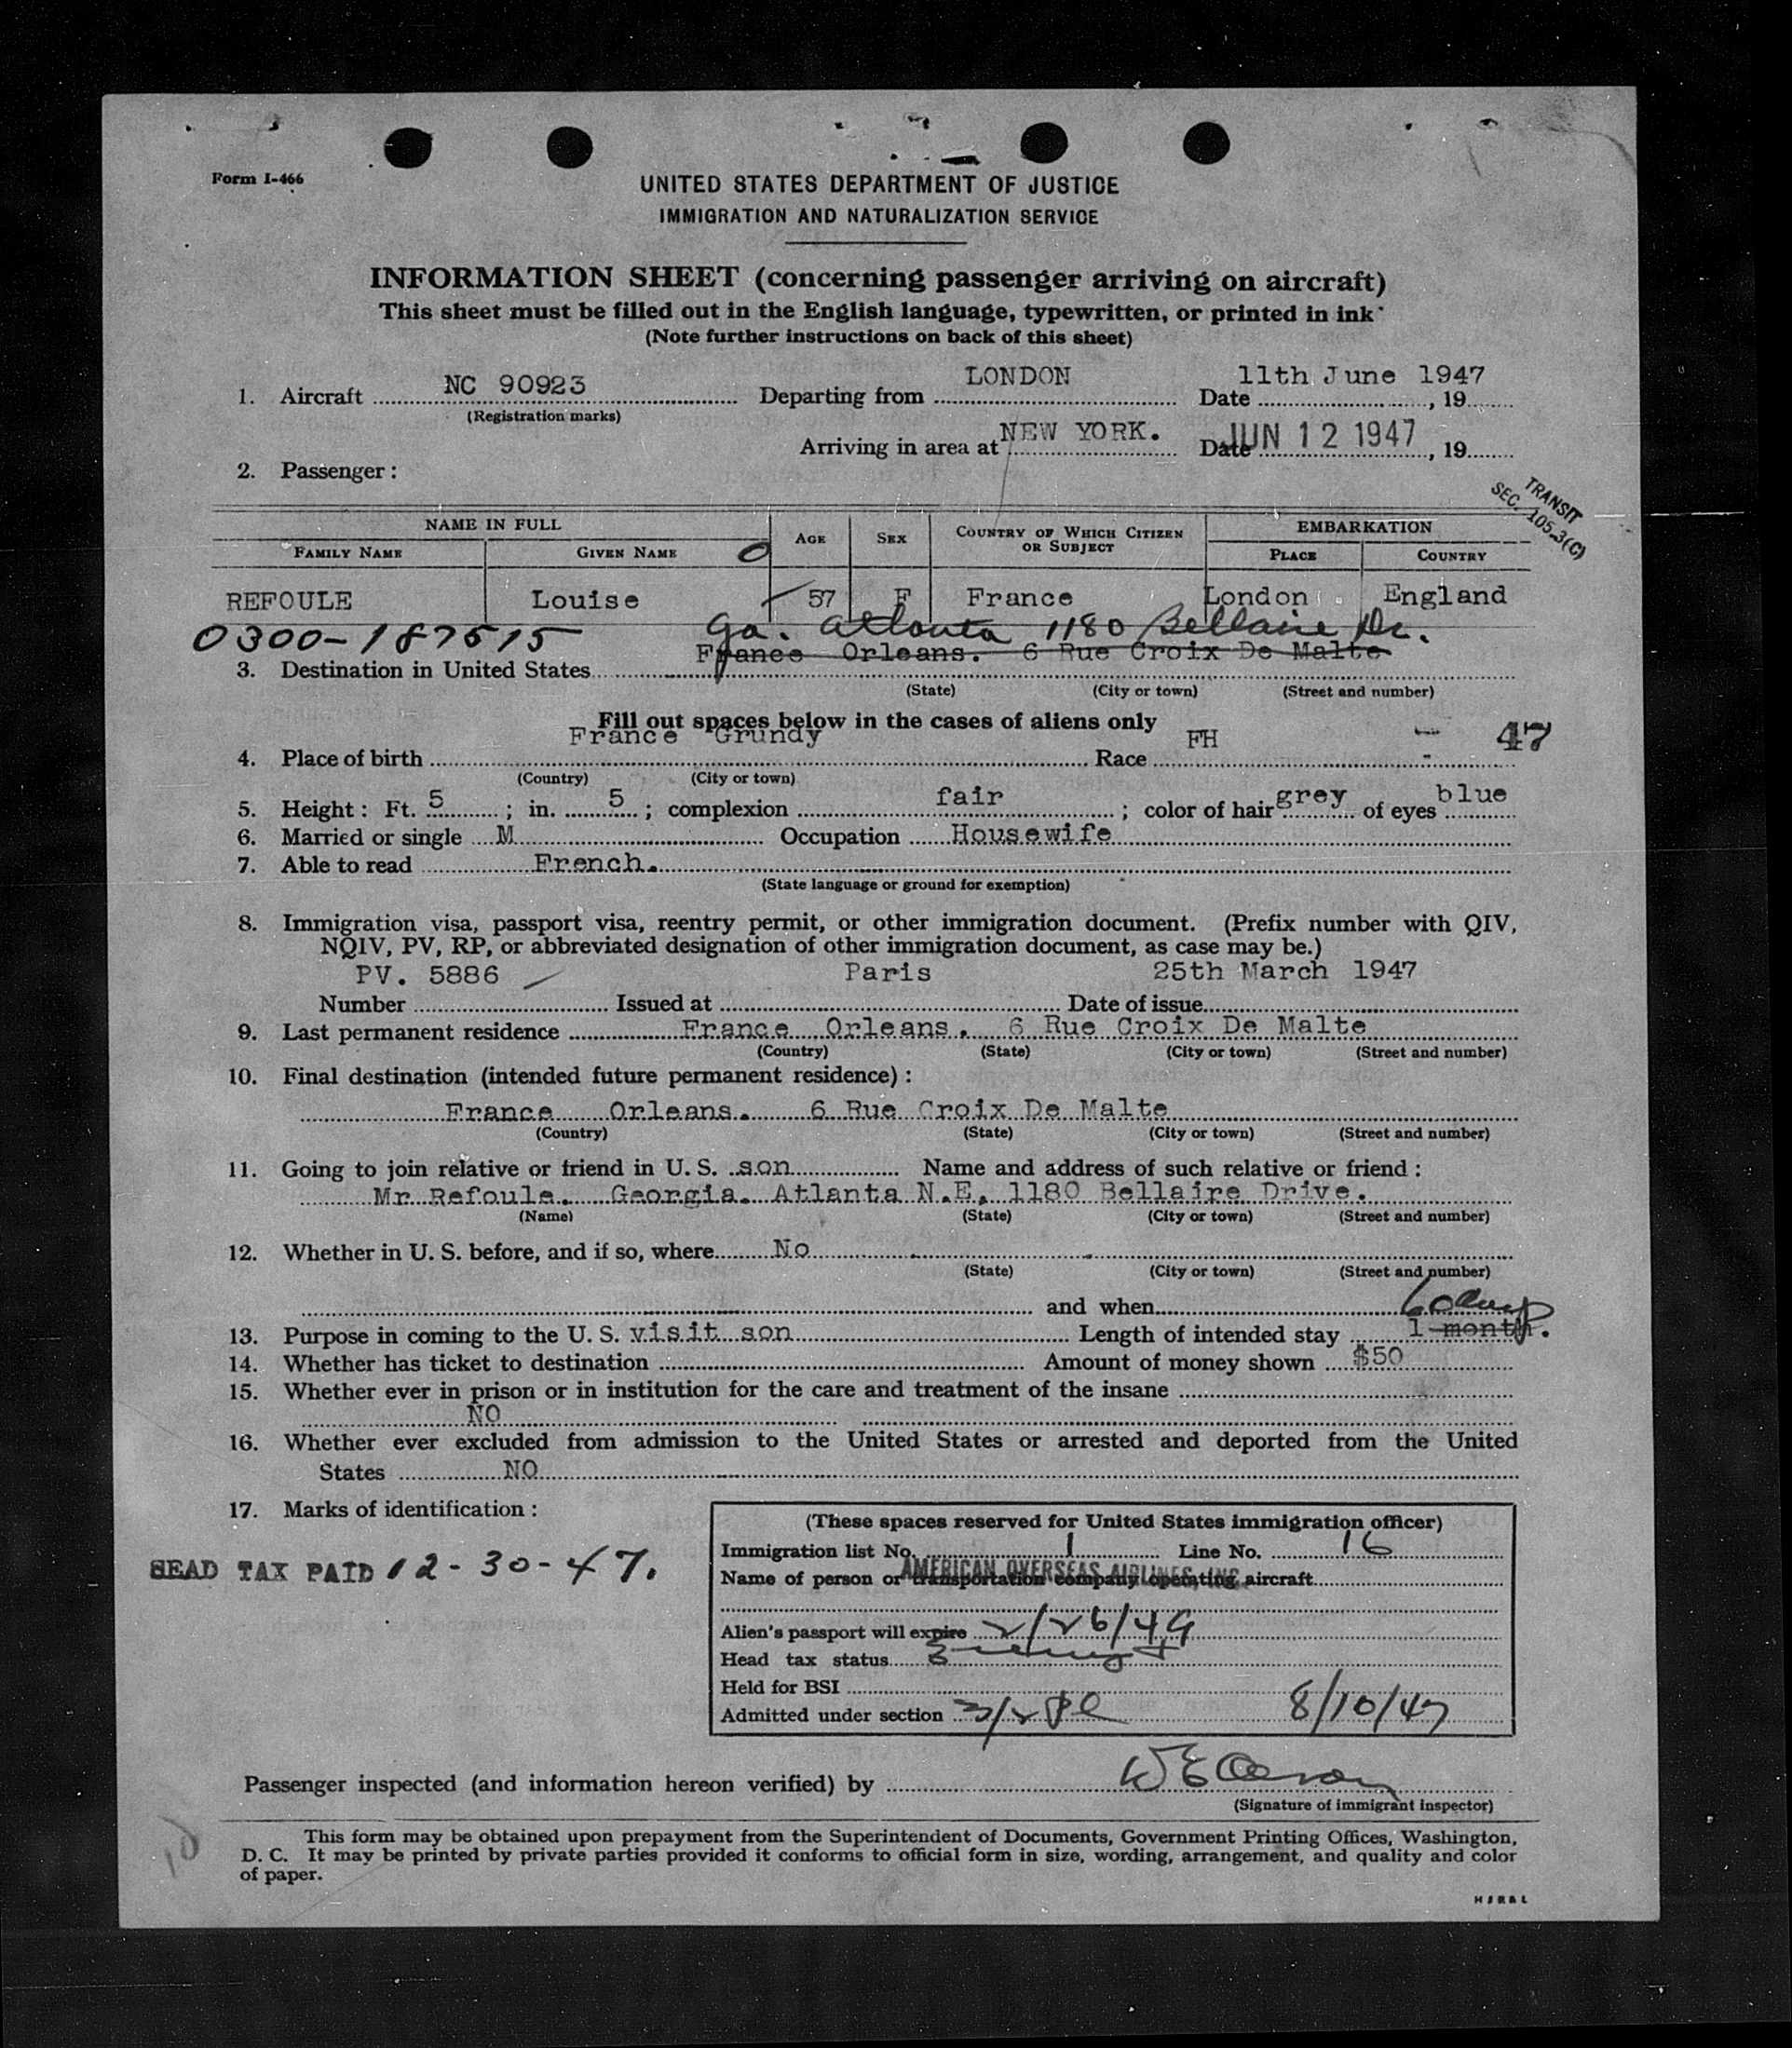 Form I-466
UNITED STATES DEPARTMENT OF JUSTICE
IMMIGRATION AND NATURALIZATION SERVICE
INFORMATION SHEET (concerning passenger arriving on aircraft)
This sheet must be filled out in the English language, typewritten, or printed in ink
(Note further instructions on back of this sheet)
1. Aircraft NC 90923 Departing from LONDON Date 11th June 1947, 19
(Registration marks)
Arriving in area at NEW YORK. Date JUN 12 1947, 19
2. Passenger:
TRANSIT
SEC. 105.3(C)
NAME IN FULL AGE SEX COUNTRY OF WHICH CITIZEN OR SUBJECT EMBARKATION
FAMILY NAME GIVEN NAME PLACE COUNTRY
REFOULE Louise 57 F France London England
0300-187515 Ga. Atlanta 1180 Bellaire Dr.
France Orleans. 6 Rue Croix De Malte
3. Destination in United States
(State) (City or town) (Street and number)
Fill out spaces below in the cases of aliens only
4. Place of birth France Grundy Race FH 47
(Country) (City or town)
5. Height: Ft. 5; in. 5; complexion fair; color of hair grey of eyes blue
6. Married or single M Occupation Housewife
7. Able to read French.
(State language or ground for exemption)
8. Immigration visa, passport visa, reentry permit, or other immigration document. (Prefix number with QIV,
NQIV, PV, RP, or abbreviated designation of other immigration document, as case may be.)
PV. 5886 Paris 25th March 1947
Number Issued at Date of issue
9. Last permanent residence France Orleans. 6 Rue Croix De Malte
(Country) (State) (City or town) (Street and number)
10. Final destination (intended future permanent residence):
France Orleans. 6 Rue Croix De Malte
(Country) (State) (City or town) (Street and number)
11. Going to join relative or friend in U. S. son Name and address of such relative or friend:
Mr Refoule. Georgia. Atlanta N.E. 1180 Bellaire Drive.
(Name) (State) (City or town) (Street and number)
12. Whether in U. S. before, and if so, where No
(State) (City or town) (Street and number)
and when
60 days
13. Purpose in coming to the U. S. visit son Length of intended stay 1 month.
14. Whether has ticket to destination Amount of money shown $50
15. Whether ever in prison or in institution for the care and treatment of the insane
NO
16. Whether ever excluded from admission to the United States or arrested and deported from the United
States NO
17. Marks of identification:
HEAD TAX PAID 12-30-47.
(These spaces reserved for United States immigration officer)
Immigration list No. 1 Line No. 16
Name of person or transportation company operating aircraft AMERICAN OVERSEAS AIRLINES, INC.
Alien's passport will expire 2/26/49
Head tax status Exempt
Held for BSI
Admitted under section 3/2 8/10/47
Passenger inspected (and information hereon verified) by
(Signature of immigrant inspector)
This form may be obtained upon prepayment from the Superintendent of Documents, Government Printing Offices, Washington,
D. C. It may be printed by private parties provided it conforms to official form in size, wording, arrangement, and quality and color
of paper.
10